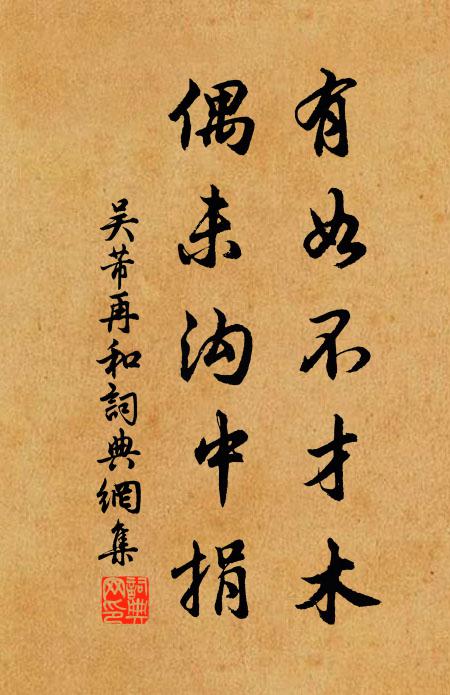 有如不才木
偶未沟中捐
吴芾再和詞典網集
詞典网印